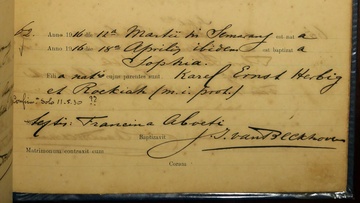 52. Anno 1916 die 12a Martii in Semarang est nat a
Anno 1916 die 18a Aprilis ibidem est baptizat a
Sophia.
Filia nata cujus parentes sunt Karel Ernst Herbig
et Roekiah (m.i. prot.)
Confirm. Solo 11.5.30
Susc. Francina Aboeti
Baptizavit J. J. van Beckhoven
Matrimonium contraxit cum
Coram